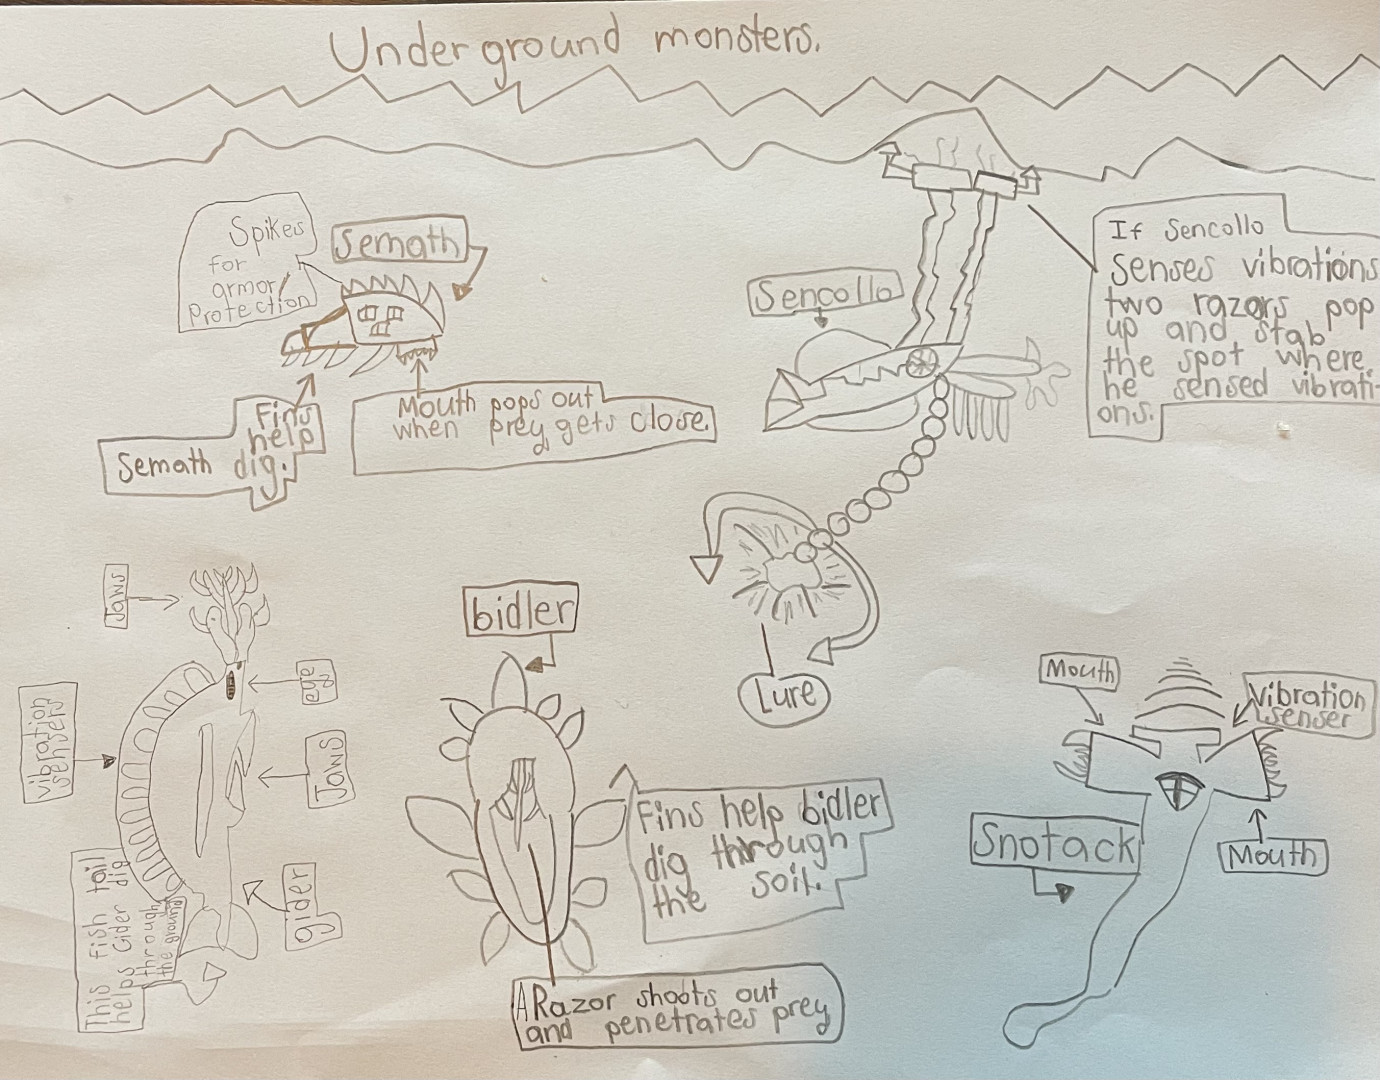 Underground monsters.
Spikes
for
armor/
Protection
Semath
Fins
help
Semath dig.
Mouth pops out
when prey gets close.
Sencollo
If Sencollo
Senses vibrations
two razors pop
up and stab
the spot where
he sensed vibrati-
ons.
Lure
Jaws
eye
vibration
sensers
Jaws
gider
This fish tail
helps Gider dig
through
the ground
bidler
Fins help bidler
dig through
the soil.
A Razor shoots out
and penetrates prey
Mouth
Vibration
senser
Snotack
Mouth